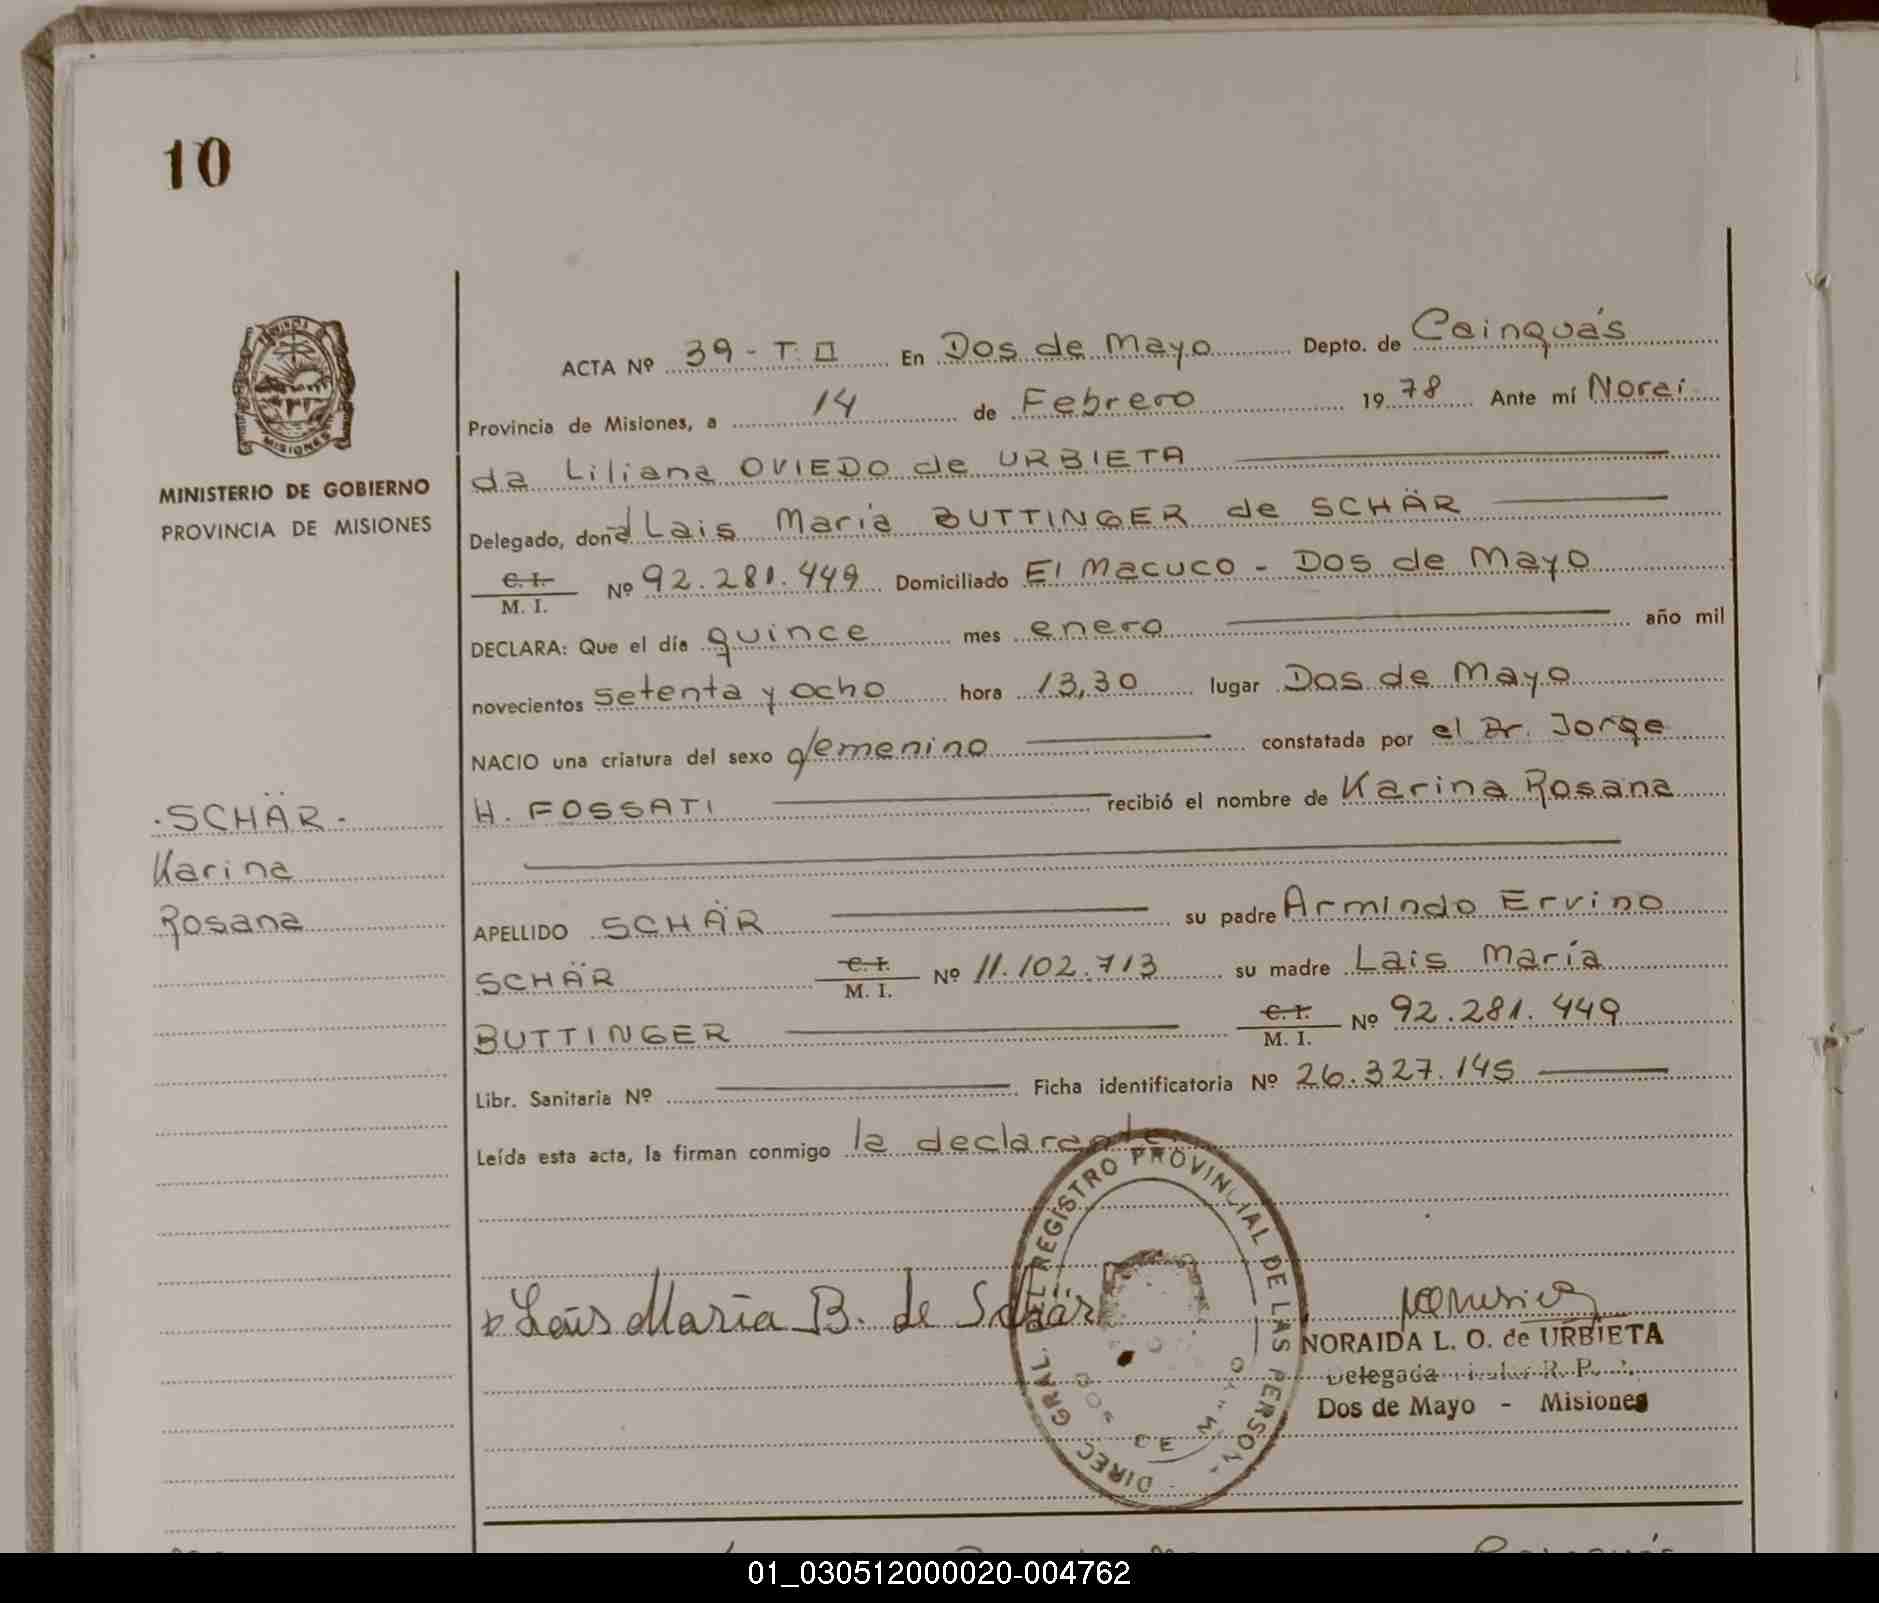 10
MINISTERIO DE GOBIERNO
PROVINCIA DE MISIONES
MISIONES
ACTA Nº 39 - T. II En Dos de Mayo Depto. de Cainguás
Provincia de Misiones, a 14 de Febrero 1978 Ante mí Norai
da Liliana OVIEDO de URBIETA
Delegado, doña Lais María BUTTINGER de SCHÄR
C. I. / M. I. Nº 92.281.449 Domiciliado El Macuco - Dos de Mayo
DECLARA: Que el día quince mes enero año mil
novecientos setenta y ocho hora 13,30 lugar Dos de Mayo
NACIO una criatura del sexo femenino constatada por el Dr. Jorge
H. FOSSATI recibió el nombre de Karina Rosana
·SCHÄR·
Karina
Rosana
APELLIDO SCHÄR su padre Armindo Ervino
SCHÄR C. I. / M. I. Nº 11.102.713 su madre Lais María
BUTTINGER C. I. / M. I. Nº 92.281.449
Libr. Sanitaria Nº Ficha identificatoria Nº 26.327.145
Leída esta acta, la firman conmigo la declarante.
Lais María B. de Schär
DIREC. GRAL. DEL REGISTRO PROVINCIAL DE LAS PERSON-
DOS DE MAYO
NORAIDA L. O. de URBIETA
Delegada R. P.
Dos de Mayo - Misiones
01_030512000020-004762